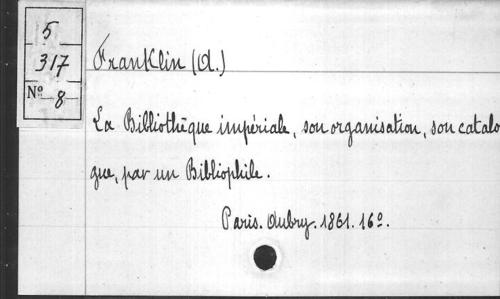 5
317
Nº 8
Franklin (A.)
La Bibliothèque impériale, son organisation, son catalo
gue, par un Bibliophile.
Paris. Aubry. 1861. 16º.